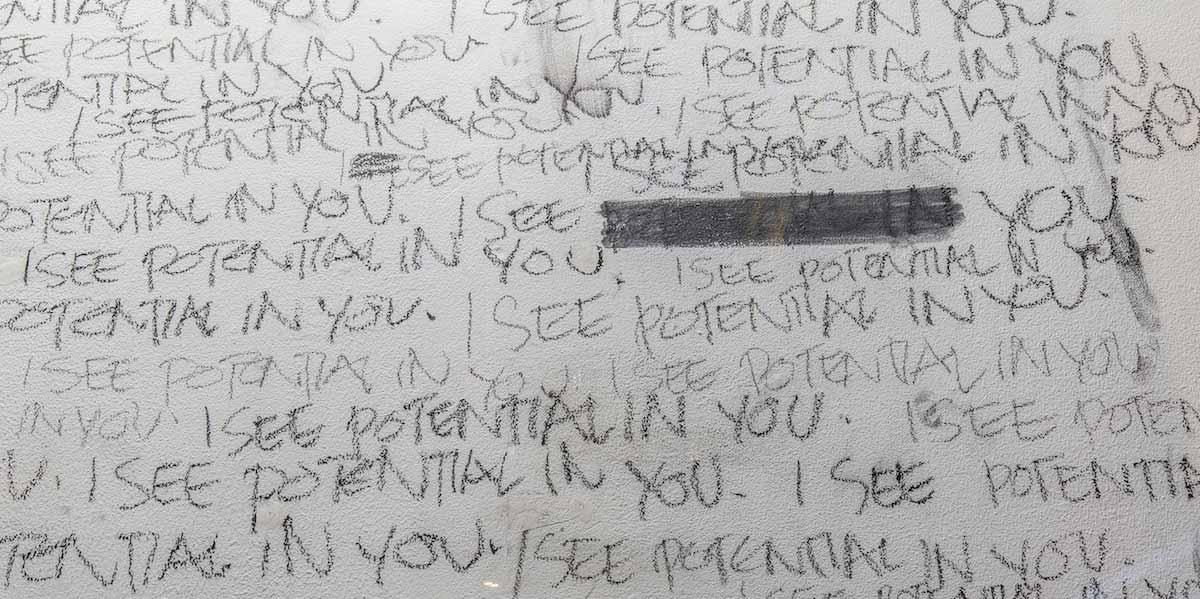 NTIAL IN YOU. I SEE POTENTIAL IN YOU.
EE POTENTIAL IN YOU I SEE POTENTIAL IN YOU.
OTENTIAL IN YOU
I SEE POTENTIAL IN YOU. I SEE POTENTIAL IN YOU
I SEE POTENTIAL IN I SEE POTENTIAL IN POTENTIAL IN YOU
SEE
POTENTIAL IN YOU. I SEE YOU.
I SEE POTENTIAL IN YOU. I SEE POTENTIAL IN YOU.
POTENTIAL IN YOU. I SEE POTENTIAL IN YOU.
I SEE POTENTIAL IN YOU. I SEE POTENTIAL IN YOU
IN YOU. I SEE POTENTIAL IN YOU. I SEE POTEN
U. I SEE POTENTIAL IN YOU. I SEE POTENTIA
TENTIAL IN YOU. I SEE POTENTIAL IN YOU.
I SEE POTENTIAL IN YOU